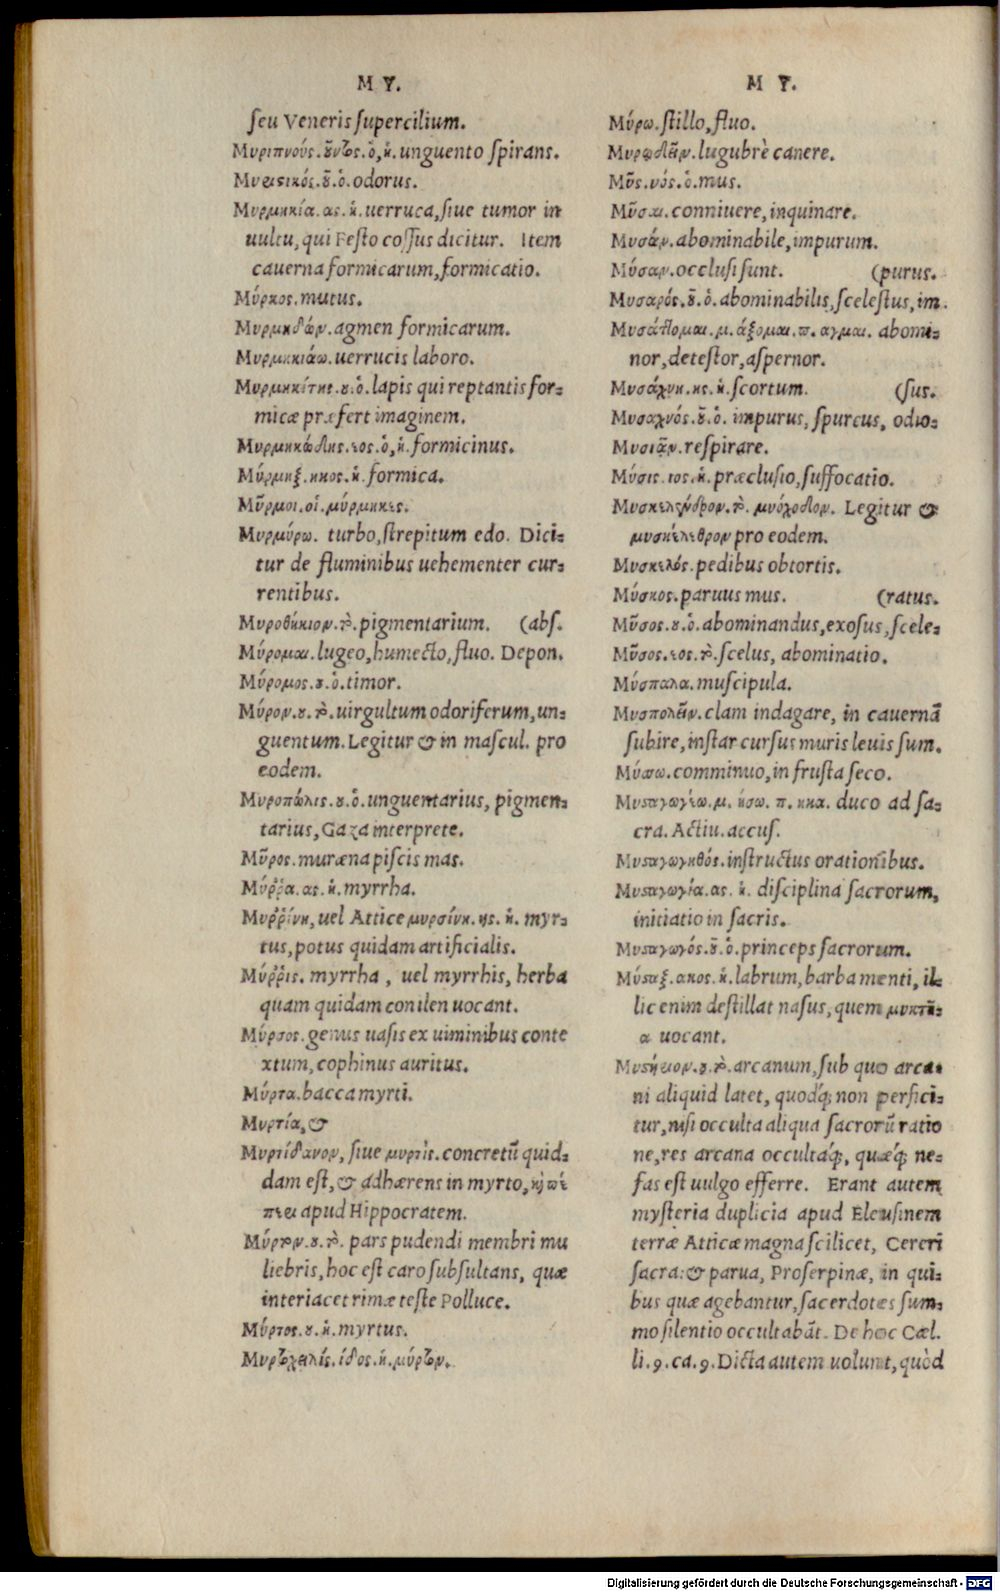 M Υ.
seu Veneris supercilium.
Μυριπνούς. οῦντος. ὁ, ἡ. unguento spirans.
Μυριστικός. οῦ. ὁ. odorus.
Μυρμηκία. ας. ἡ. uerruca, siue tumor in
uultu, qui Festo cossus dicitur. Item
cauerna formicarum, formicatio.
Μύρκος. mutus.
Μυρμηδών. agmen formicarum.
Μυρμηκιάω. uerrucis laboro.
Μυρμηκίτης. ου. ὁ. lapis qui reptantis for-
micæ præfert imaginem.
Μυρμηκώδης. εος. ὁ, ἡ. formicinus.
Μύρμηξ. ηκος. ἡ. formica.
Μῦρμοι. οἱ. μύρμηκες.
Μυρμύρω. turbo, strepitum edo. Dici-
tur de fluminibus uehementer cur-
rentibus.
Μυροθήκιον. τὸ. pigmentarium. (abs.
Μύρομαι. lugeo, humecto, fluo. Depon.
Μύρομος. ου. ὁ. timor.
Μύρον. ου. τὸ. uirgultum odoriferum, un-
guentum. Legitur & in mascul. pro
eodem.
Μυροπώλης. ου. ὁ. unguentarius, pigmen-
tarius, Gaza interprete.
Μῦρος. muræna piscis mas.
Μύῤῥα. ας. ἡ. myrrha.
Μυῤῥίνη, uel Attice μυρσίνη. ης. ἡ. myr-
tus, potus quidam artificialis.
Μύῤῥις. myrrha , uel myrrhis, herba
quam quidam conilen uocant.
Μύρσος. genus uasis ex uiminibus conte
xtum, cophinus auritus.
Μύρτα. bacca myrti.
Μυρτία, &
Μυρτίδανον, siue μυρτὶς. concretũ quid-
dam est, & adhærens in myrto, καὶ πέ
περι apud Hippocratem.
Μύρτον. ου. τὸ. pars pudendi membri mu
liebris, hoc est caro subsultans, quæ
interiacet rimæ teste Polluce.
Μύρτος. ου. ἡ. myrtus.
Μυρτοχειλίς. ίδος. ἡ. μύρτον.
M Υ.
Μύρω. stillo, fluo.
Μυρῳδεῖν. lugubrè canere.
Μῦς. υός. ὁ. mus.
Μῦσαι. conniuere, inquinare.
Μυσάν. abominabile, impurum.
Μύσαν. occlusi sunt. (purus.
Μυσαρός. οῦ. ὁ. abominabilis, scelestus, im.
Μυσάττομαι. μ. άξομαι. π. αγμαι. abomi-
nor, detestor, aspernor.
Μυσάχνη. ης. ἡ. scortum. (sus.
Μυσαχνός. οῦ. ὁ. impurus, spurcus, odio-
Μυσιᾷν. respirare.
Μύσις. ιος. ἡ. præclusio, suffocatio.
Μυσκελένδρον. τὸ. μυόχοδον. Legitur &
μυσκέλεθρον pro eodem.
Μυσκελός. pedibus obtortis.
Μύσκος. paruus mus. (ratus.
Μῦσος. ου. ὁ. abominandus, exosus, scele-
Μῦσος. εος. τὸ. scelus, abominatio.
Μύσπαλα. muscipula.
Μυσπολεῖν. clam indagare, in cauernã
subire, instar cursus muris leuis sum.
Μύσσω. comminuo, in frusta seco.
Μυσταγωγέω. μ. ήσω. π. ηκα. duco ad sa-
cra. Actiu. accus.
Μυσταγωγηθός. instructus orationibus.
Μυσταγωγία. ας. ἡ. disciplina sacrorum,
initiatio in sacris.
Μυσταγωγός. οῦ. ὁ. princeps sacrorum.
Μύσταξ. ακος. ἡ. labrum, barba menti, il-
lic enim destillat nasus, quem μυκτῆρ-
α uocant.
Μυστήριον. ου. τὸ. arcanum, sub quo arca-
ni aliquid latet, quodq́; non perfici-
tur, nisi occulta aliqua sacrorũ ratio
ne, res arcana occultáq́;, quæq́; ne-
fas est uulgo efferre. Erant autem
mysteria duplicia apud Eleusinem
terræ Atticæ magna scilicet, Cereri
sacra: & parua, Proserpinæ, in qui-
bus quæ agebantur, sacerdotes sum-
mo silentio occultabãt. De hoc Cæl.
li. 9. ca. 9. Dicta autem uolunt, quòd
Digitalisierung gefördert durch die Deutsche Forschungsgemeinschaft - DFG